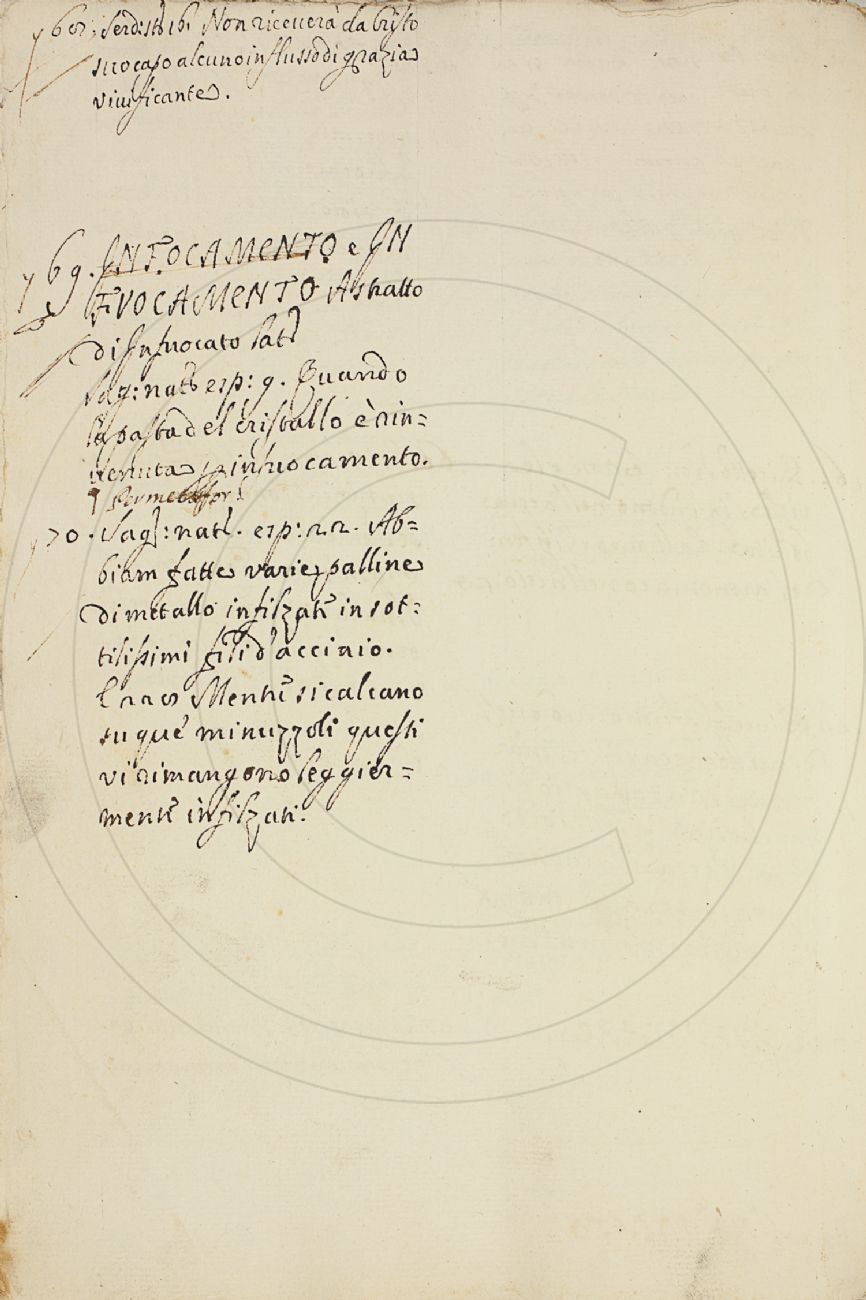 68. Serd: st: 16. Non riceverà da Cristo
suo capo alcuno influsso di grazia
vivificante.
69. INFOCAMENTO e IN
FVOCAMENTO Astratto
di Infuocato Lat:
Sag: nat: esp: 9. Quando
la pasta del cristallo è rin=
venuta p infuocamento.
¶ Per metafor:
70. Sag: nat: esp: 22. Ab=
biam fatte varie palline
di metallo infilzate in sot=
tilissimi fili d'acciaio.
E Mentre si calcano
su que' minuzzoli questi
vi rimangono leggier=
mente infilzati.